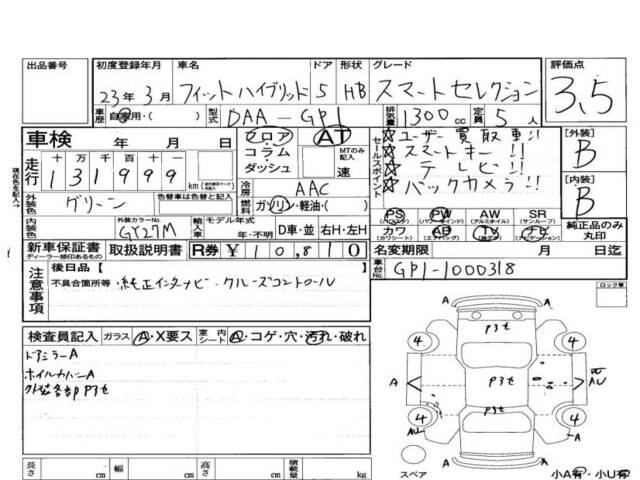 出品番号 初度登録年月 車名 ドア 形状 グレード 評価点
23年 3月 フィットハイブリッド 5 HB スマートセレクション 3.5
車歴 自家用・( ) 型式 DAA-GP1 排気量 1300cc 定員 5人
車検 年 月 日 フロア AT セールスポイント ☆ユーザー買取車!! [外装]
走行 十 万 千 百 十 一 コラム MTのみ記入 ☆スマートキー!! B
131999 km ダッシュ 速 ☆テレビ!!
現在色を記入→
外装色 グリーン 色替車は色替と記入 冷房 AAC ☆バックカメラ!! [内装]
燃料 ガソリン・軽油・( ) B
内装色 外装カラーNo. GY27M 輸入車 モデル年式 年・不明 D車・並 右H・左H
PS (パワステ) PW (パワーウインド) AW (アルミホイル) SR (サンルーフ) 純正品のみ丸印
カワ AB TV ナビ
新車保証書 取扱説明書 R券 ¥10,810 名変期限 月 日迄
ディーラー様印あるもの
注意事項 後日品【 】 車台No. GP1-1000318
不具合箇所等・純正インターナビ・クルーズコントロール
ロック車
検査員記入 ガラス A・X要ス 室内シート A・コゲ・穴・汚れ・破れ
ドアミラーA
ホイルカバーA
外装各部Pアセ
Pアセ
4 4
A Pアセ A
AU
4 4
AU Pアセ
A
スペア 小A有・小U有
長さ cm 幅 cm 高さ cm 積載量 kg